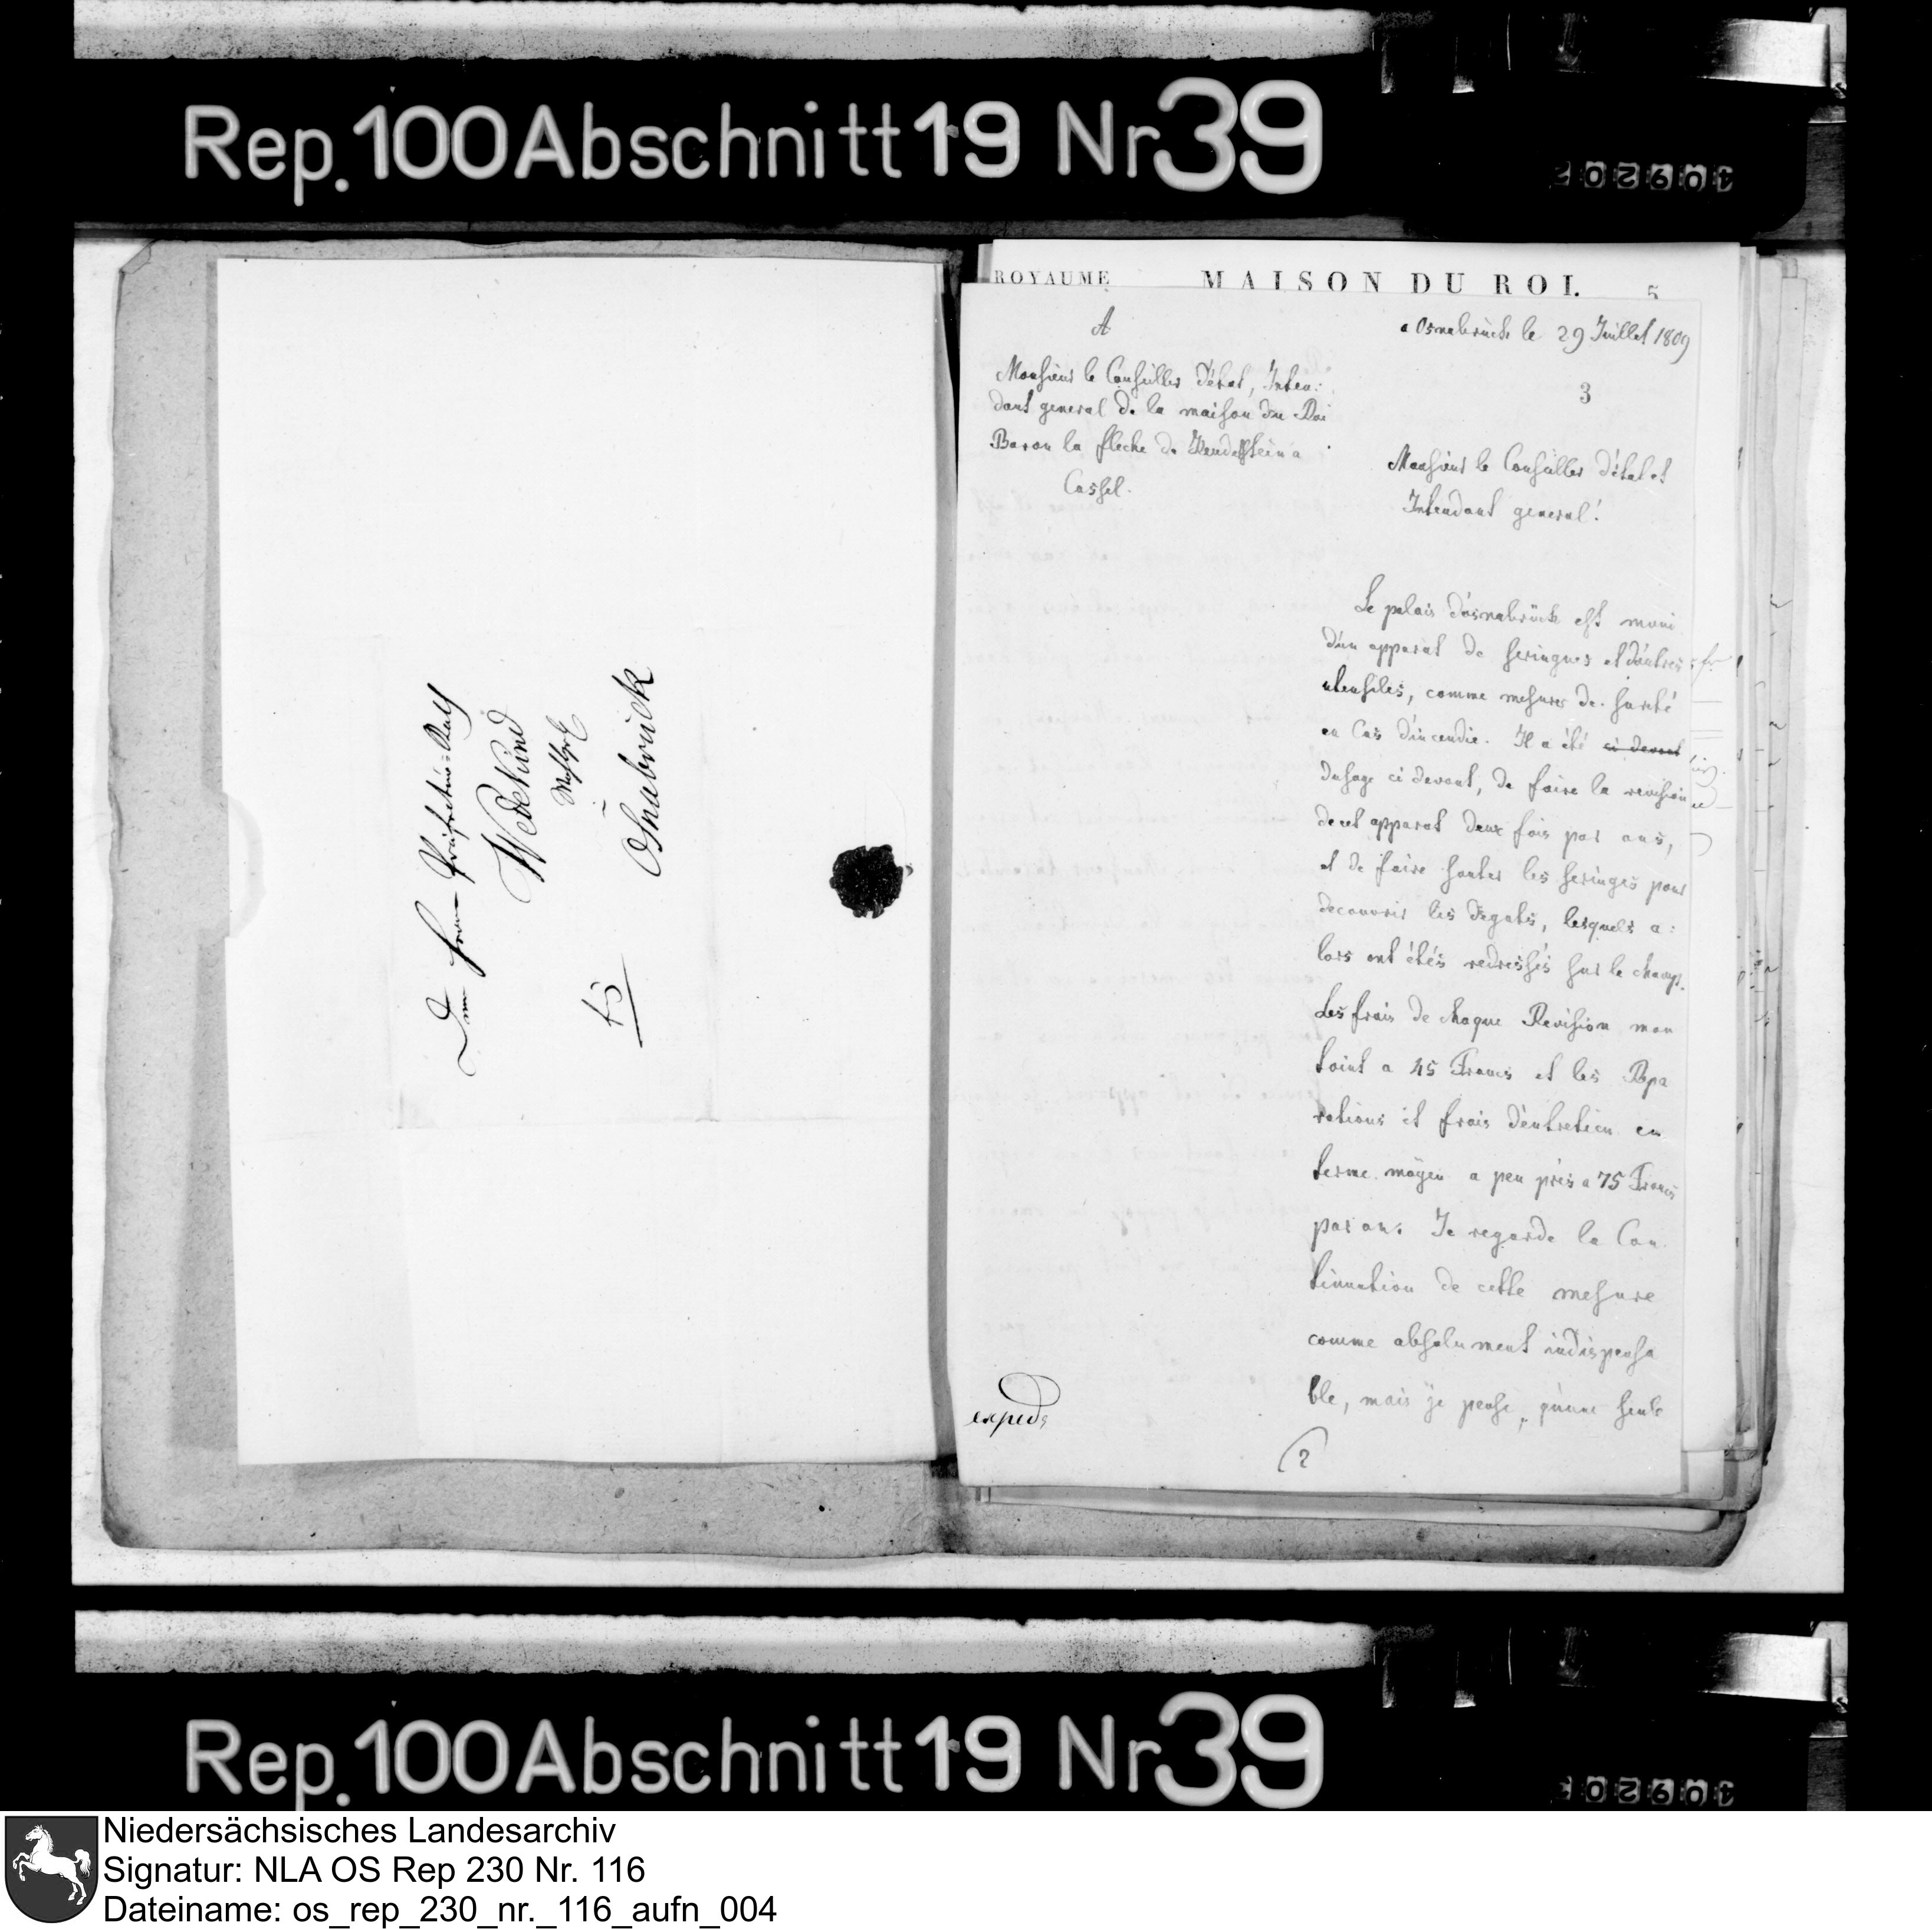 Rep. 100 Abschnitt 19 Nr 39
Dem Herrn Präfectur-Rath
Wedekind
Osnabrück
ROYAUME MAISON DU ROI. 5
A
a Osnabrück le 29 Juillet 1809
3
Monsieur le Conseiller d'état, Inten:
dant general de la maison du Roi
Baron la fleche de Keudelstein a
Cassel.
Monsieur le Conseiller d'état et
Intendant general!
Le palais d'osnabrück est muni
d'un apparat de seringues et d'autres
utensiles, comme mesures de sureté
en Cas d'incendie. Il a été ci devant
dusage ci devant, de faire la revision
de cet apparat deux fois par ans,
et de faire sauter les seringes pour
decouvrir les degats, lesquels a:
lors ont étés redressés sur le champ.
Les frais de chaque Revision mon
toint a 45 Francs et les Repa
rations et frais d'entretien en
terme moÿen a peu près a 75 Francs
par an. Je regarde la Con
tinuation de cette mesure
comme absolument indispensa
ble, mais je pense, qu'une seule
expeds
2
Rep. 100 Abschnitt 19 Nr 39
Niedersächsisches Landesarchiv
Signatur: NLA OS Rep 230 Nr. 116
Dateiname: os_rep_230_nr._116_aufn_004